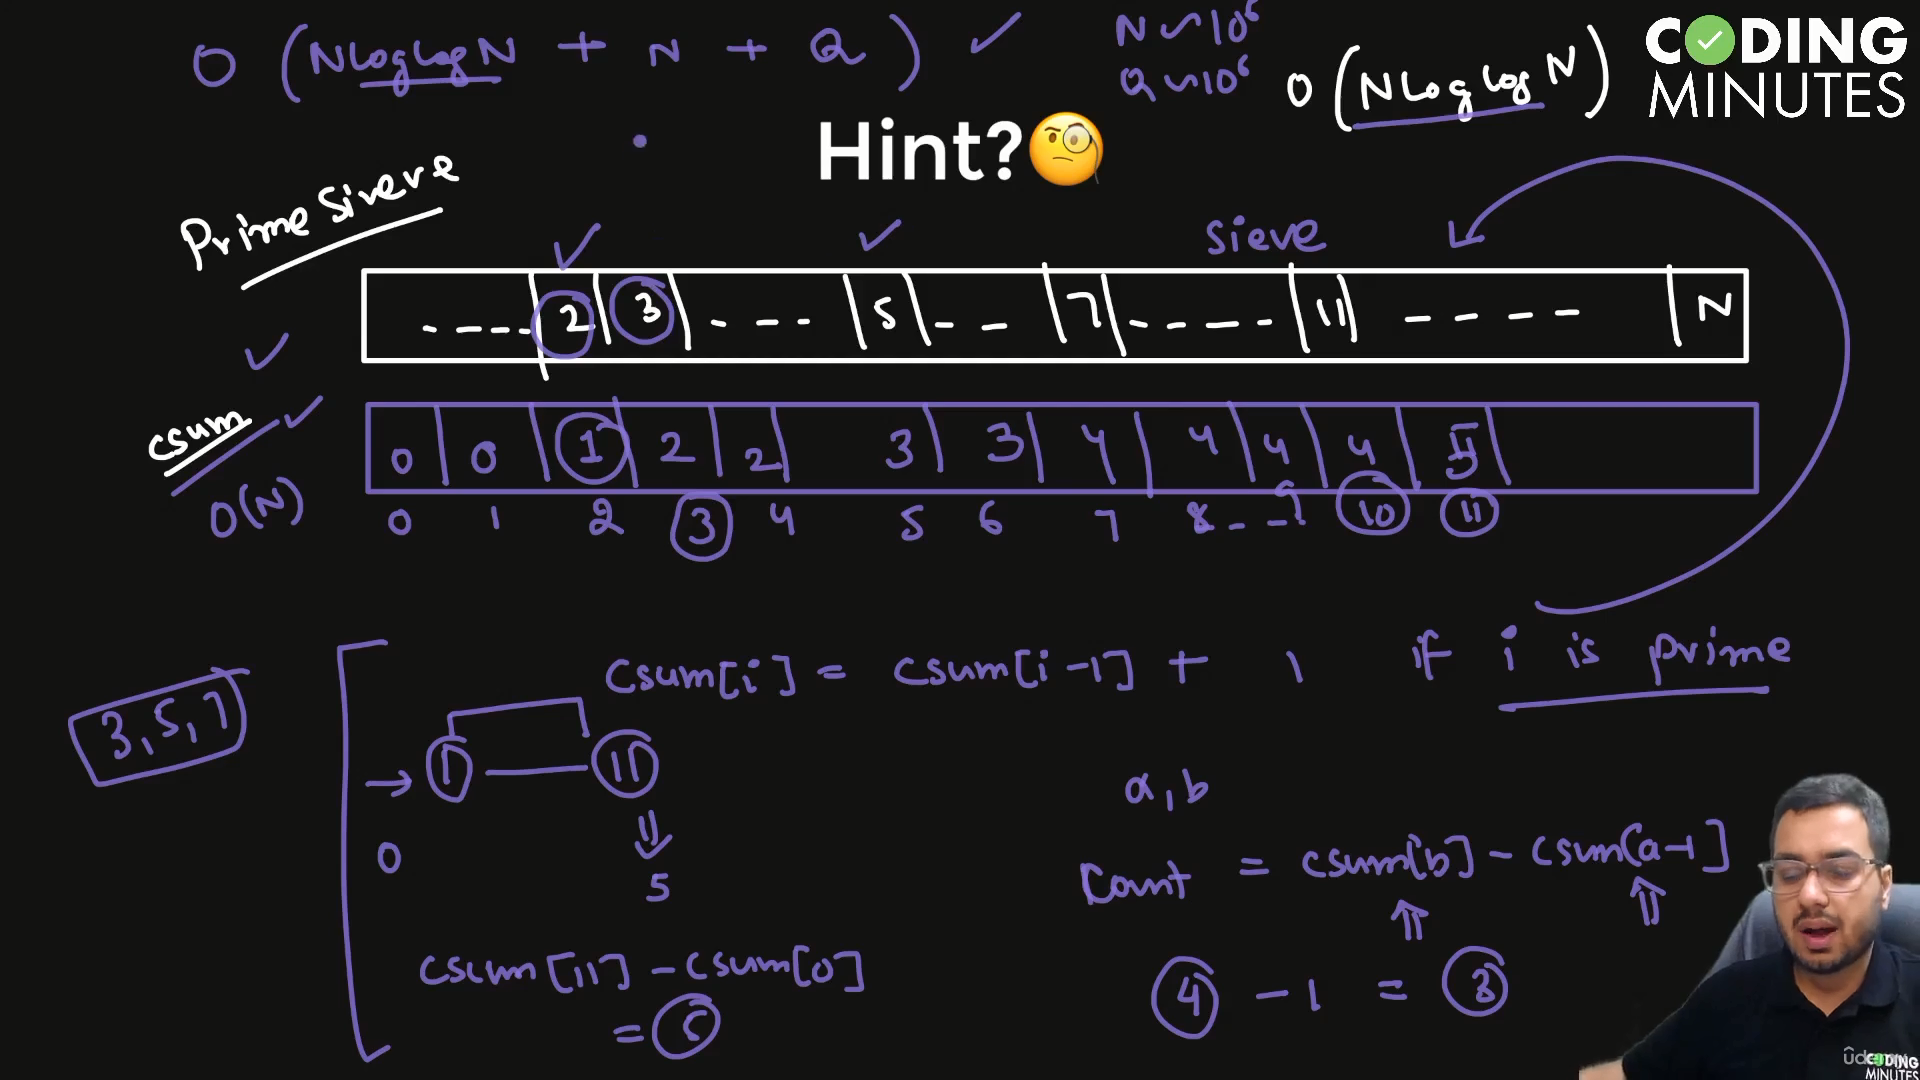 O (NLogLogN + N + Q) ✓
N ~ 10⁶
Q ~ 10⁶
O (NLogLogN)
CODING
MINUTES
Hint?🧐
Prime Sieve
Sieve
---- 2 3 --- 5 -- 7 ---- 11 ---- N
csum
0 0 1 2 2 3 3 4 4 4 4 5
O(N)
0 1 2 3 4 5 6 7 8 -- 9 10 11
csum[i] = csum[i-1] + 1 if i is prime
3,5,7
→ 1 — 11
0
5
a, b
Count = csum[b] - csum[a-1]
csum[11] - csum[0]
= 5
4 - 1 = 3
ûdemy
CODING
MINUTES